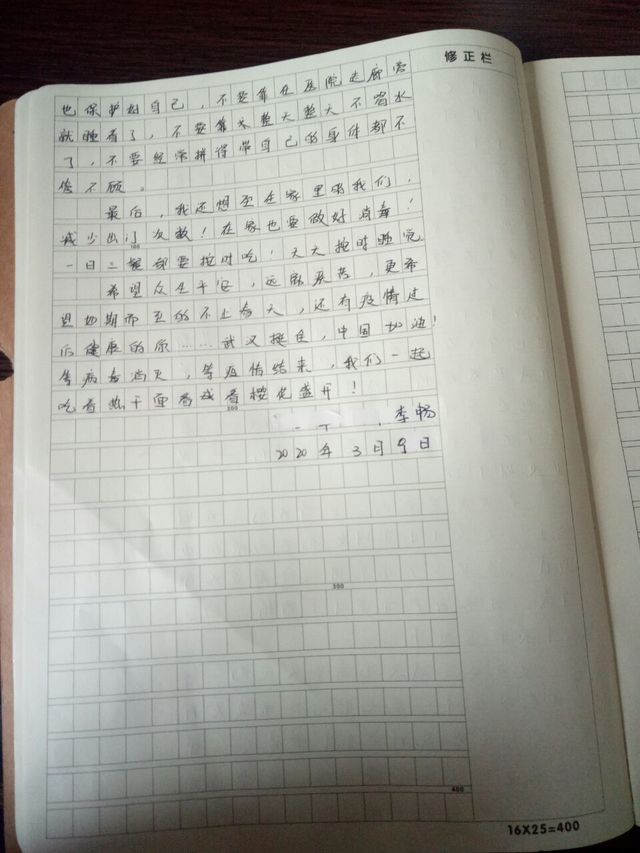 修正栏
也保护好自己，不要靠在医院走廊旁
就睡着了，不要靠着整天整天不喝水
了，不要经常拼得带自己的身体都不
管不顾。
最后，我还想对在家里的我们，
减少出门次数！在家也要做好消毒！
一日三餐都要按时吃！天天按时睡觉
希望众生平安，远离疾苦，更希
望如期而至的不止春天，还有疫情过
后健康的你……武汉挺住，中国加油！
等病毒消灭，等疫情结来，我们一起
吃着热干面看樱花盛开！
李畅
2020年3月9日
100
200
300
400
16X25=400